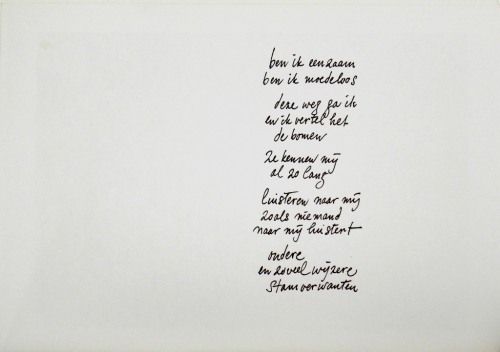 ben ik eenzaam
ben ik vredeloos
deze weg ga ik
en ik vertel het
de bomen
ze kennen mij
al zo lang
luisteren naar mij
zoals niemand
naar mij luistert
oudere
en zoveel wijzere
stamverwanten